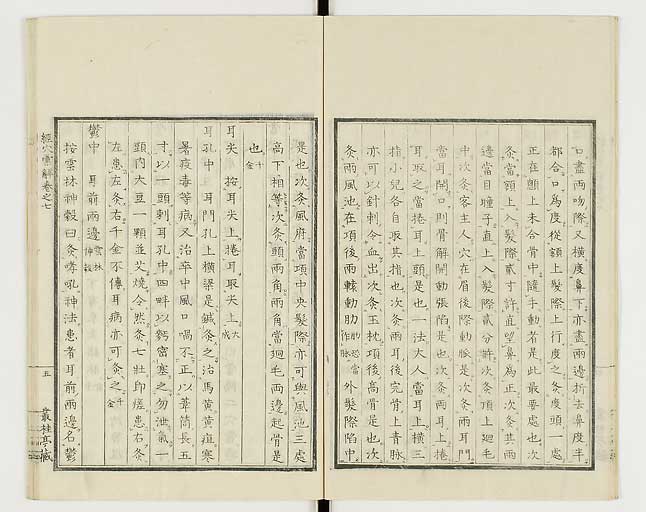 口盡兩吻際又橫度鼻下亦盡兩邊折去鼻度半
都合口爲度從額上髮際上行度之灸度頭一處
正在顖上未合骨中隨手動者是此最要處也次
灸當額上入髮際貳寸許直望鼻爲正次灸其兩
邊當目瞳子直上入髮際貳分許次灸頂上廻毛
中次灸客主人穴在眉後際動脈是次灸兩耳門
當耳開口則骨解開動張陷是也次灸兩耳上捲
耳取之當捲耳上頭是也一法大人當耳上橫三
指小兒各自取其指也次灸兩耳後完骨上青脈
亦可以針刺令血出次灸玉枕項後高骨是也次
灸兩風池在項後兩轅動肋肋恐當作脈外髮際陷中
是也次灸風府當項中央髮際亦可與風池三處
高下相等次灸頭兩角兩角當廻毛兩邊起骨是
也千金
耳尖 按耳尖上捲耳取尖上大成
耳孔中 耳門孔上橫梁是鍼灸之治馬黃黃疸寒
暑疫毒等病又治卒中風口喎不正以葦筒長五
寸以一頭刺耳孔中四畔以麪密塞之勿泄氣一
頭內大豆一顆並艾燒令然灸七壯卽瘥患右灸
左患左灸右千金不傳耳病亦可灸之千金
鬱中 耳前兩邊雲林神彀
按雲林神彀曰灸哮吼神法患者耳前兩邊名鬱
經穴彙解卷之七
五
叢桂亭藏